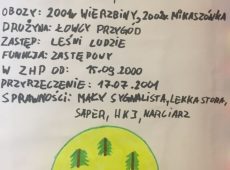 OBOZY: 2001r WIERZBINY, 2002r. MIKASZÓWKA
DRUŻYNA: ŁOWCY PRZYGÓD
ZASTĘP: LEŚNI LUDZIE
FUNKCJA: ZASTĘPOWY
W ZHP OD: 15.09.2000
PRZYRZECZENIE: 17.07.2001
SPRAWNOŚCI: MAŁY SYGNALISTA, LEKKA STOPA,
SAPER, HKJ, NARCIARZ